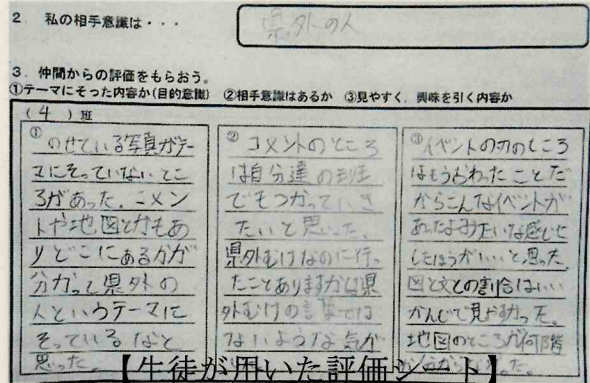 2. 私の相手意識は・・・
県外の人
3. 仲間からの評価をもらおう。
①テーマにそった内容か(目的意識) ②相手意識はあるか ③見やすく、興味を引く内容か
(4)班
①
のせている写真がテー
マにそっていないとこ
ろがあった。コメン
トや地図とかもあ
りどこにあるかが
分かって県外の
人というテーマに
そっているなと
思った。
②コメントのところ
は自分達の班
でもつかっていき
たいと思った。
県外むけなのに行っ
たことありますかは県
外むけの言葉では
ないような気が
③イベントの方のところ
はもうおわったことだ
からこんなイベントが
あったよみたいな感じに
したほうがいいと思った。
図と文との割合はいい
かんじで見やすかった。
地図のところが何階
【生徒が用いた評価シート】